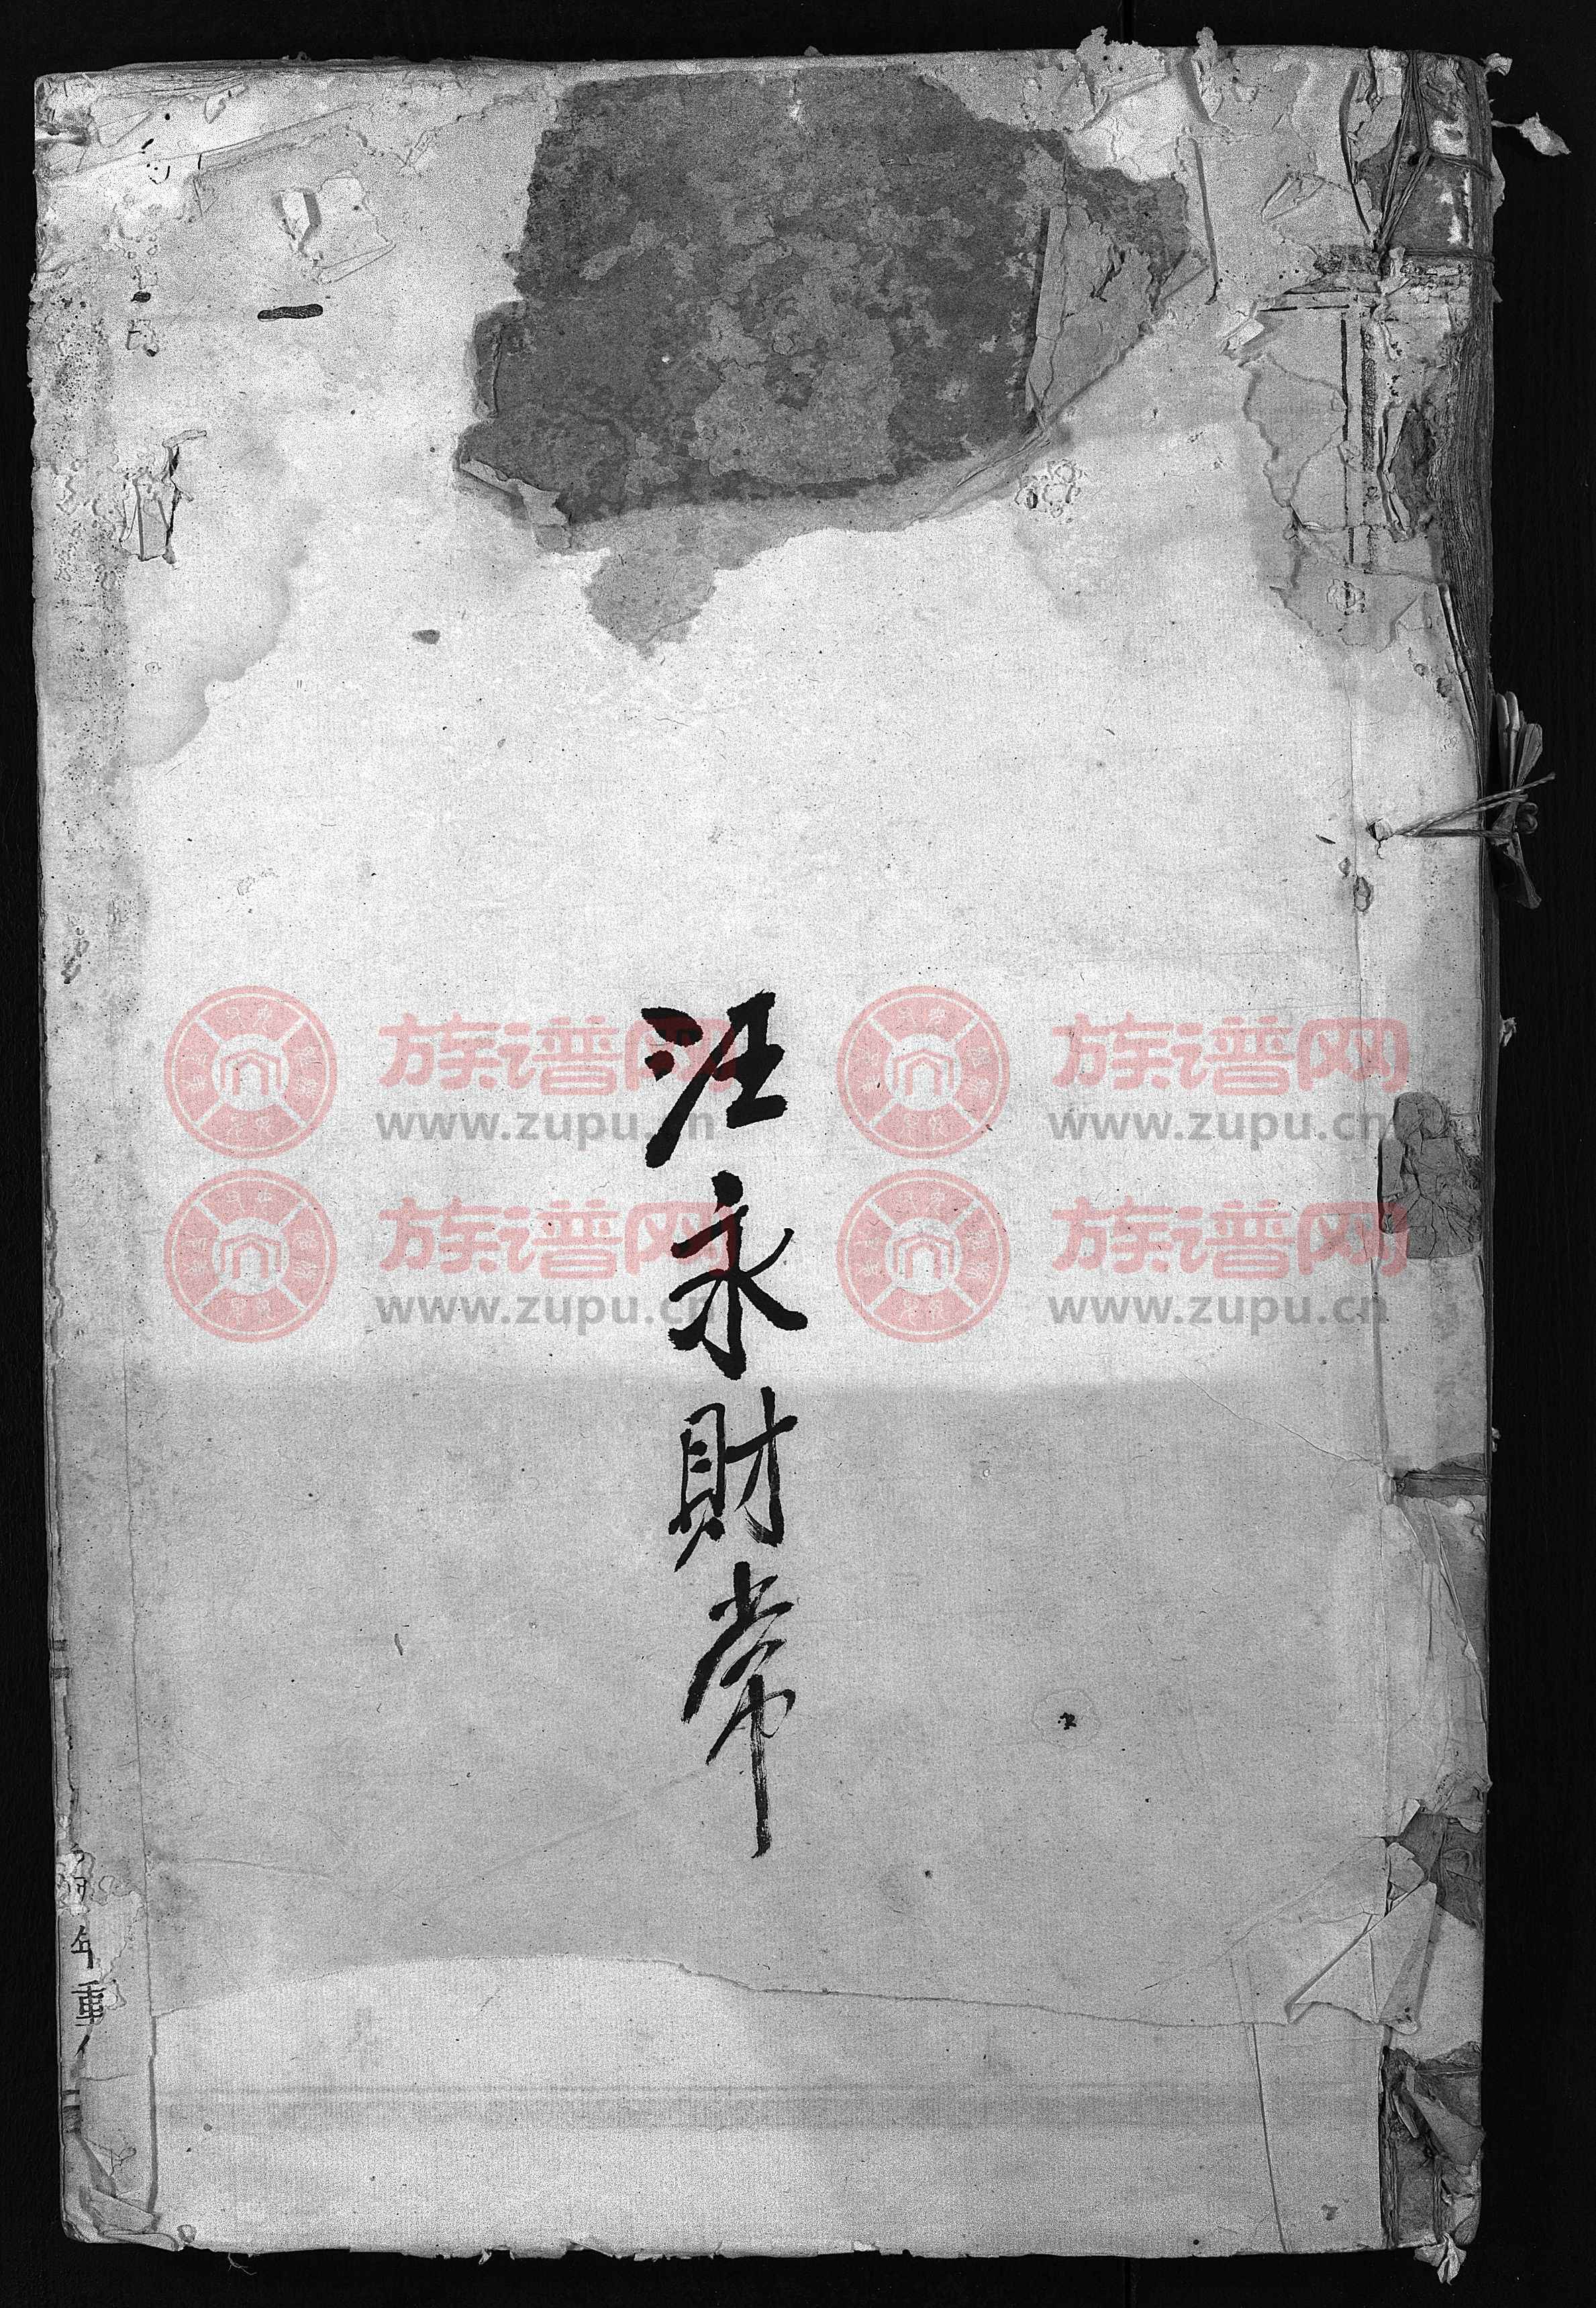 汪永財常
年重
族谱网
www.zupu.cn
族谱网
www.zupu.cn
族谱网
www.zupu.cn
族谱网
www.zupu.cn